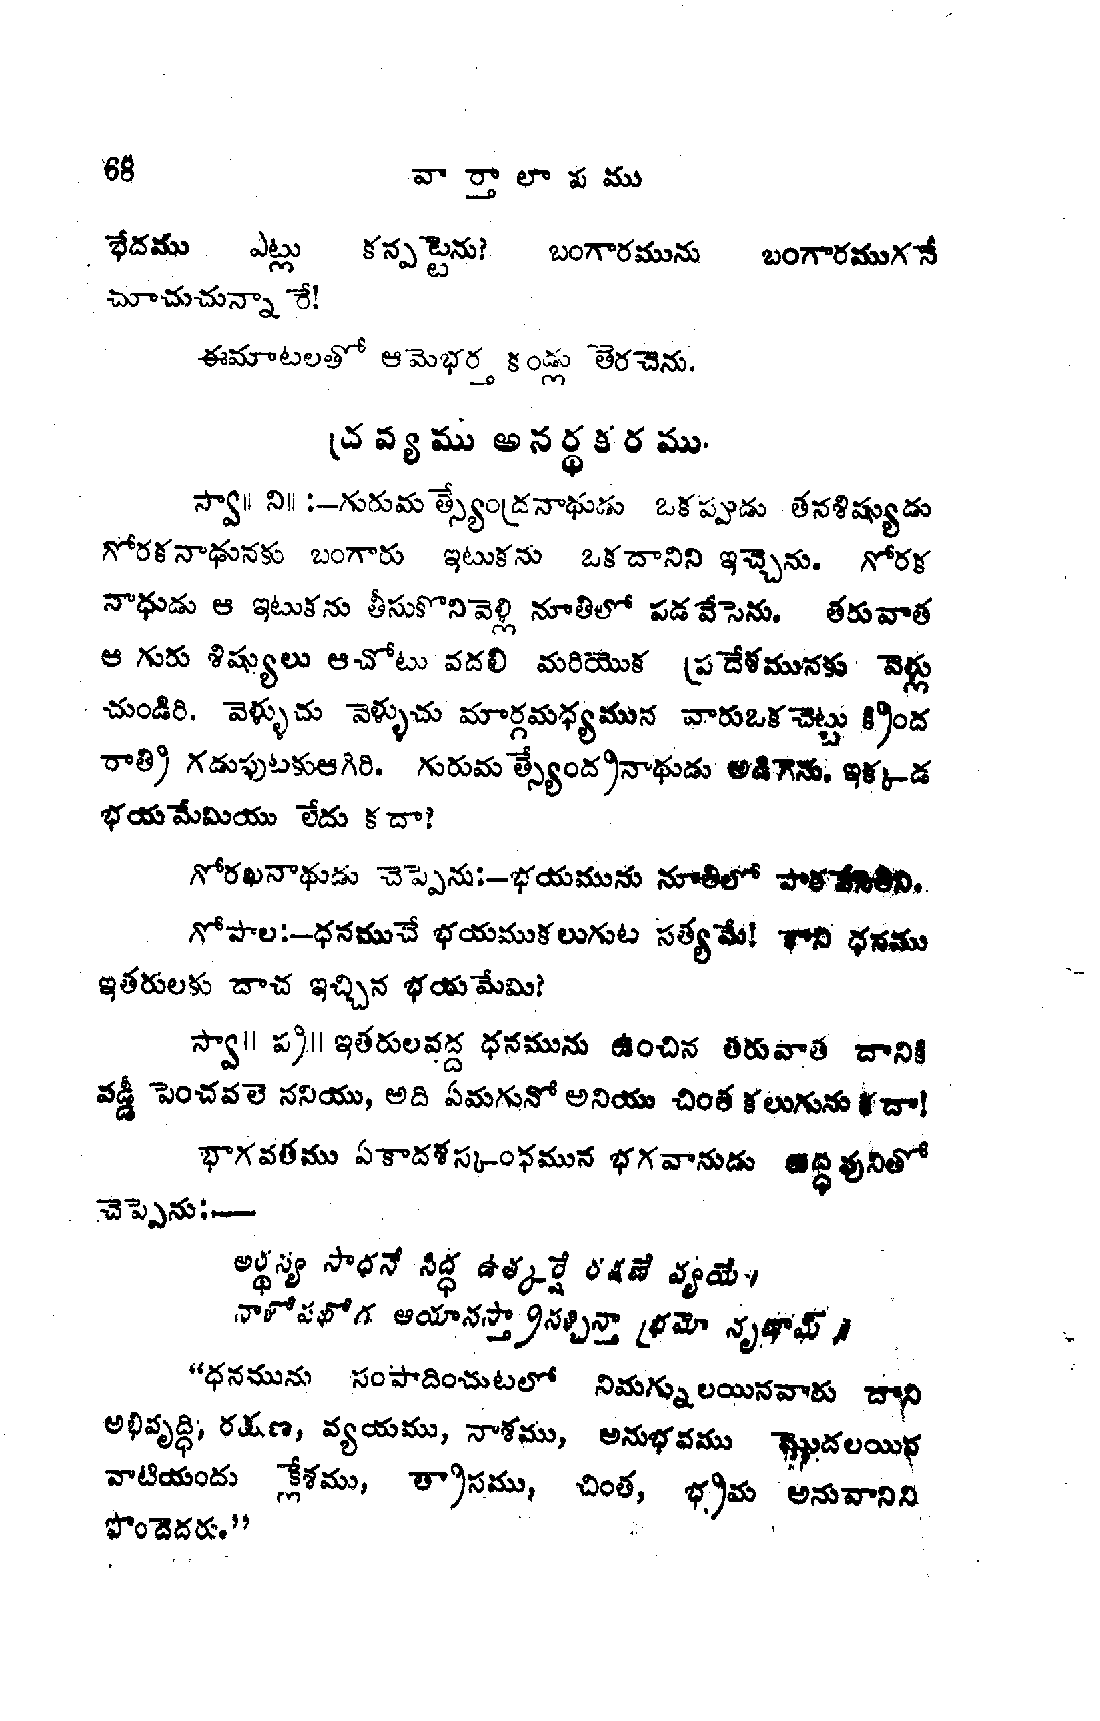 68
వార్తాలాపము
భేదము ఎట్లు కన్పట్టెను? బంగారమును బంగారముగనే
చూచుచున్నారే!
ఈమాటలతో ఆమెభర్త కండ్లు తెరచెను.
ద్రవ్యము అనర్థకరము.
స్వా॥ ని॥ :—గురుమత్స్యేంద్రనాథుడు ఒకప్పుడు తనశిష్యుడు
గోరకనాథునకు బంగారు ఇటుకను ఒకదానిని ఇచ్చెను. గోరక
నాథుడు ఆ ఇటుకను తీసుకొనివెళ్లి నూతిలో పడవేసెను. తరువాత
ఆ గురు శిష్యులు ఆచోటు వదలి మరియొక ప్రదేశమునకు వెళ్లు
చుండిరి. వెళ్ళుచు వెళ్ళుచు మార్గమధ్యమున వారుఒకచెట్టు క్రింద
రాత్రి గడుపుటకుఆగిరి. గురుమత్స్యేంద్రనాథుడు అడిగెను. ఇక్కడ
భయమేమియు లేదు కదా?
గోరఖనాథుడు చెప్పెను:—భయమును నూతిలో పారవేసితిని.
గోపాల:—ధనముచే భయముకలుగుట సత్యమే! కాని ధనము
ఇతరులకు దాచ ఇచ్చిన భయమేమి?
స్వా॥ ప్ర॥ ఇతరులవద్ద ధనమును ఉంచిన తరువాత దానికి
వడ్డీ పెంచవలె ననియు, అది ఏమగునో అనియు చింత కలుగును కదా!
భాగవతము ఏకాదశస్కంధమున భగవానుడు ఉద్ధవునితో
చెప్పెను:—
అర్థస్య సాధనే సిద్ధ ఉత్కర్షే రక్షణే వ్యయే।
నాశోపభోగ ఆయానస్త్రానశ్చిన్తా భ్రమో నృణామ్॥
“ధనమును సంపాదించుటలో నిమగ్నులయినవారు దాని
అభివృద్ధి, రక్షణ, వ్యయము, నాశము, అనుభవము మ్మొదలయిన
వాటియందు క్లేశము, త్రాసము, చింత, భ్రమ అనువానిని
పొందెదరు.”